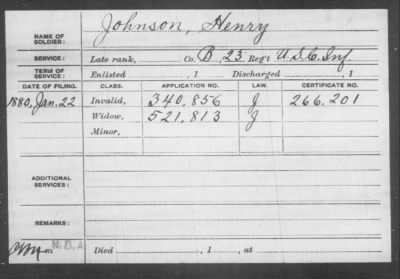 Johnson, Henry
NAME OF SOLDIER:
SERVICE: Late rank, Co. B, 23 Reg't U.S.C. Inf.
TERM OF SERVICE: Enlisted , 1 Discharged , 1
DATE OF FILING. CLASS. APPLICATION NO. LAW. CERTIFICATE NO.
1880, Jan. 22 Invalid, 340,856 J 266.201
Widow, 521,813 J
Minor,
ADDITIONAL SERVICES:
REMARKS:
Died , 1 , at